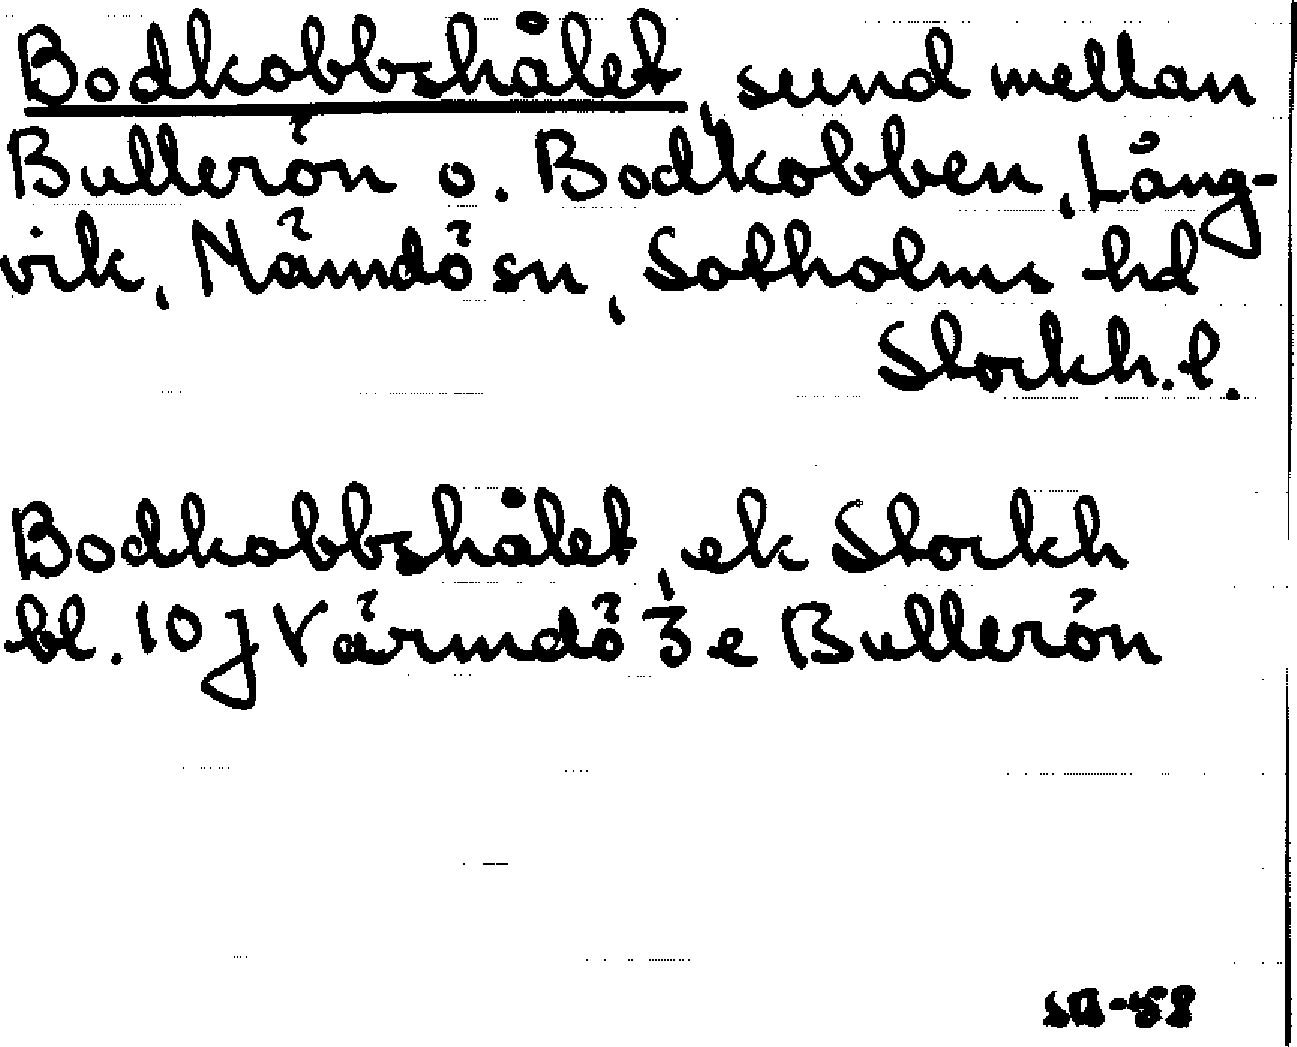 Bodkobbshålet, sund mellan
Bullerön o. Bodkobben, Lång-
vik, Nämdö sn, Sotholms hd
Stockh. l.
Bodkobbshålet, ek Stockh
bl. 10 J Värmdö 3 e Bullerön
SB-58